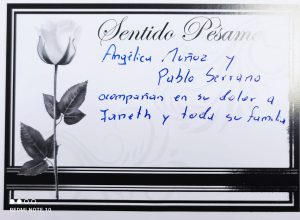 Sentido Pésame
Angélica Muñoz y
Pablo Serrano
acompañan en su dolor a
Janeth y toda su familia
REDMI NOTE 10